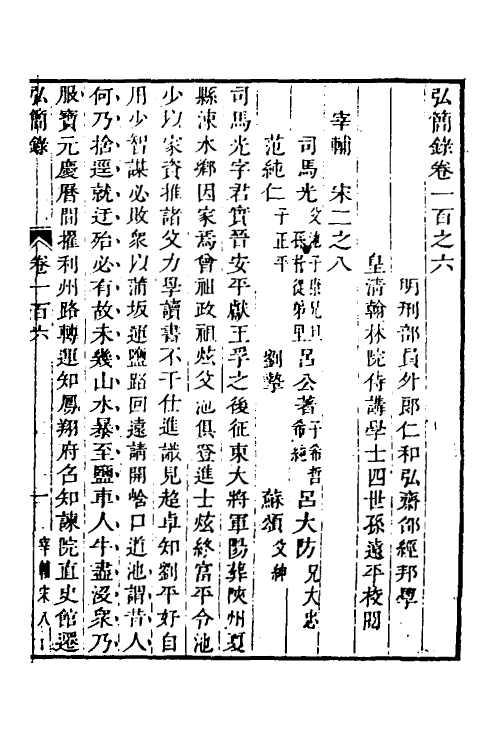 弘簡錄卷一百之六
明刑部員外郎仁和弘齋邵經邦學
皇清翰林院侍講學士四世孫遠平校閱
宰輔 宋二之八
司馬光父池子康兄旦孫植從弟里 呂公著子希哲希純 呂大防兄大忠
范純仁子正平 劉摯 蘇頌父紳
司馬光字君實晉安平獻王孚之後征東大將軍陽葬陝州夏
縣涑水鄉因家焉曾祖政祖炫父池俱登進士炫終富平令池
少以家資推諸父力學讀書不干仕進識見超卓知劉平好自
用少智謀必敗衆以蒲坂運鹽路回遠請開唅口道池謂昔人
何乃捨逕就迂殆必有故未幾山水暴至鹽車人牛盡沒衆乃
服寶元慶曆間擢利州路轉運知鳳翔府召知諫院直史館遷
弘簡錄 卷一百六 一 宰輔宋八